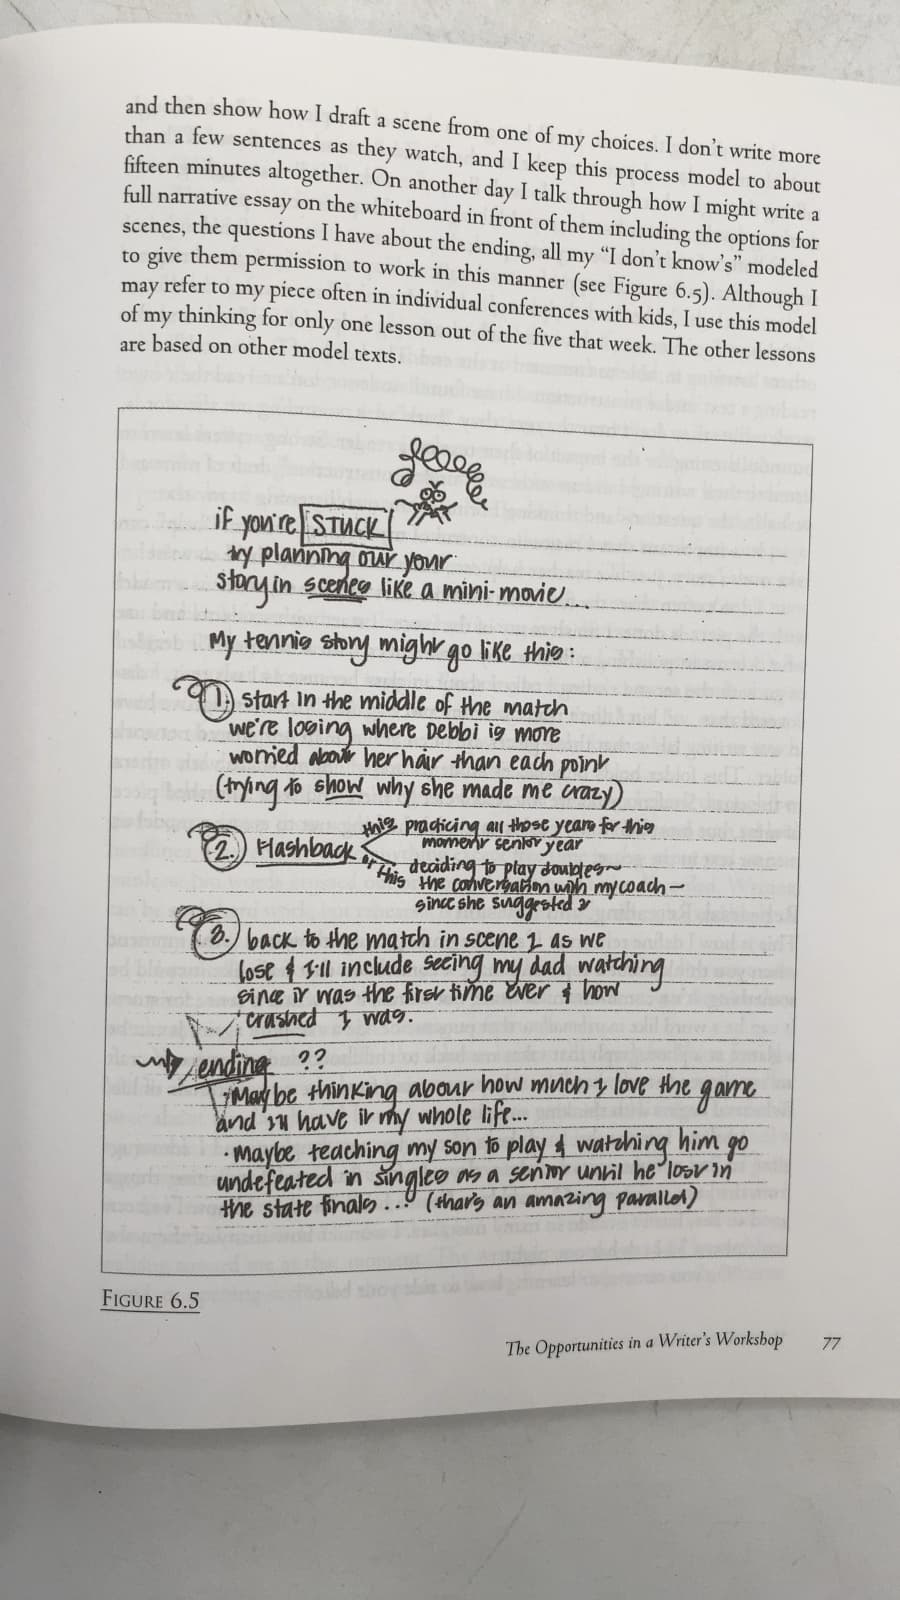 and then show how I draft a scene from one of my choices. I don't write more
than a few sentences as they watch, and I keep this process model to about
fifteen minutes altogether. On another day I talk through how I might write a
full narrative essay on the whiteboard in front of them including the options for
scenes, the questions I have about the ending, all my “I don't know's” modeled
to give them permission to work in this manner (see Figure 6.5). Although I
may refer to my piece often in individual conferences with kids, I use this model
of my thinking for only one lesson out of the five that week. The other lessons
are based on other model texts.
if you're STUCK
try planning out your
story in scenes like a mini-movie...
My tennis story might go like this:
1. start in the middle of the match
we're losing where Debbi is more
worried about her hair than each point
(trying to show why she made me crazy)
this practicing all those years for this
moment senior year
2. Flashback
or this deciding to play doubles~
the conversation with my coach—
since she suggested it
3. back to the match in scene 1 as we
lose & I'll include seeing my dad watching
since it was the first time ever & how
crushed I was.
ending ??
· Maybe thinking about how much I love the game
and I'll have it my whole life...
· Maybe teaching my son to play & watching him go
undefeated in singles as a senior until he lost in
the state finals... (that's an amazing parallel)
FIGURE 6.5
The Opportunities in a Writer's Workshop 77